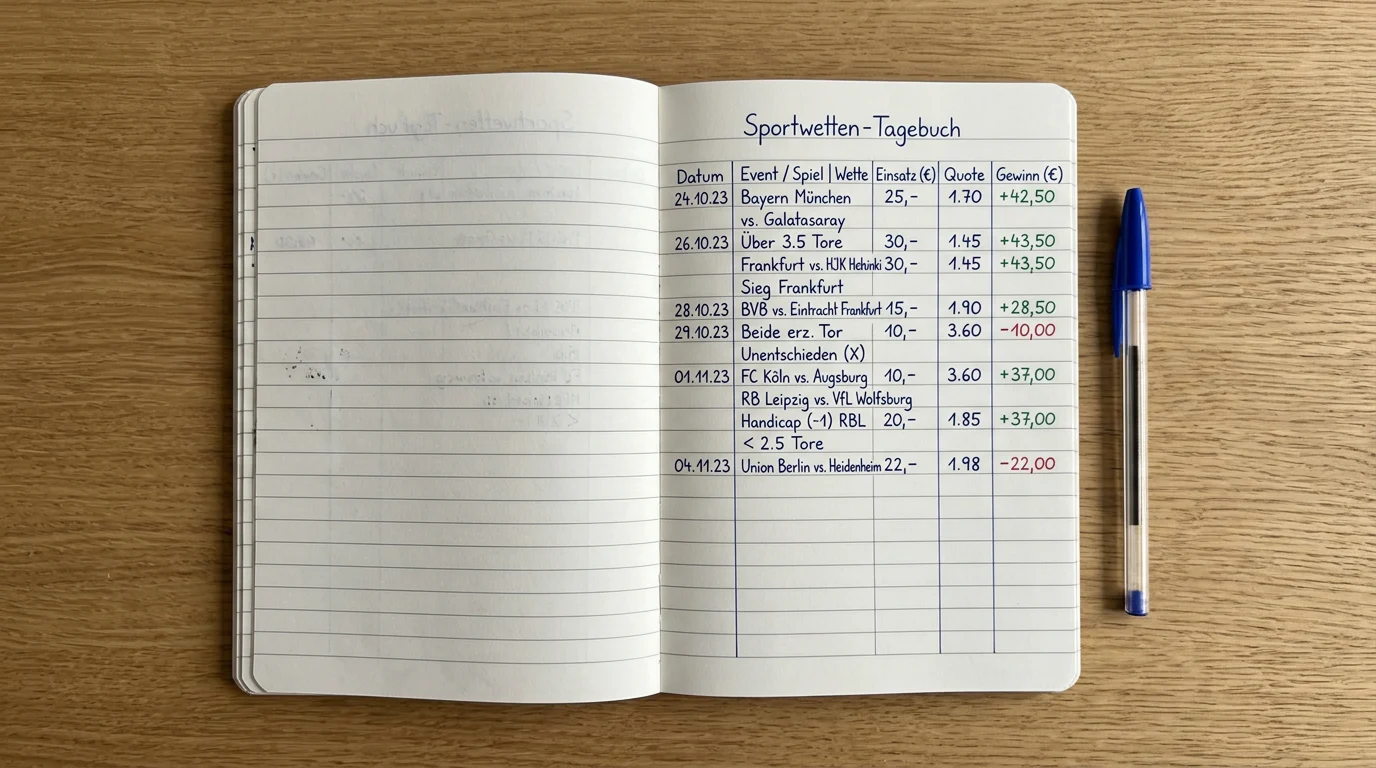 Sportwetten-Tagebuch
Datum Event / Spiel | Wette Einsatz (€) Quote Gewinn (€)
24.10.23 Bayern München 25,- 1.70 +42,50
vs. Galatasaray
26.10.23 Über 3.5 Tore 30,- 1.45 +43,50
Frankfurt vs. HJK Helsinki 30,- 1.45 +43,50
Sieg Frankfurt
28.10.23 BVB vs. Eintracht Frankfurt 15,- 1.90 +28,50
29.10.23 Beide erz. Tor 10,- 3.60 -10,00
Unentschieden (X)
01.11.23 FC Köln vs. Augsburg 10,- 3.60 +37,00
RB Leipzig vs. VfL Wolfsburg
Handicap (-1) RBL 20,- 1.85 +37,00
< 2.5 Tore
04.11.23 Union Berlin vs. Heidenheim 22,- 1.98 -22,00